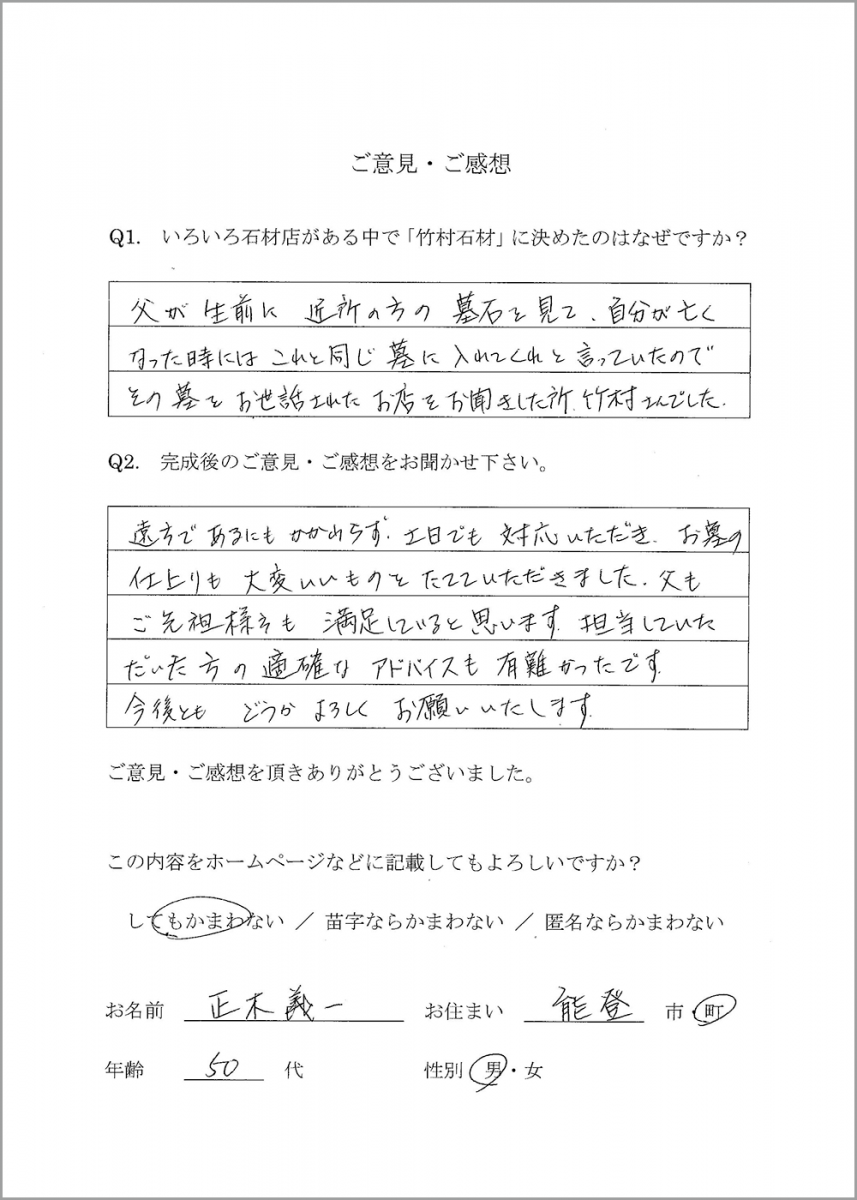 ご意見・ご感想
Q1. いろいろ石材店がある中で「竹村石材」に決めたのはなぜですか？
父が生前に 近所の方の 墓石を見て、自分が亡く
なった時には これと同じ墓に 入れてくれと言っていたので
その墓を お世話された お店をお聞きした所、竹村さんでした。
Q2. 完成後のご意見・ご感想をお聞かせ下さい。
遠方で あるにも かかわらず、土日でも 対応いただき、お墓の
仕上りも 大変いいものを たてていただきました。父も
ご先祖様方も 満足していると 思います。担当していた
だいた 方の 適確な アドバイスも 有難かったです。
今後とも どうか よろしく お願いいたします。
ご意見・ご感想を頂きありがとうございました。
この内容をホームページなどに記載してもよろしいですか？
してもかまわない ／ 苗字ならかまわない ／ 匿名ならかまわない
お名前 正木 義一 お住まい 能登 市・町
年齢 50 代 性別 男・女